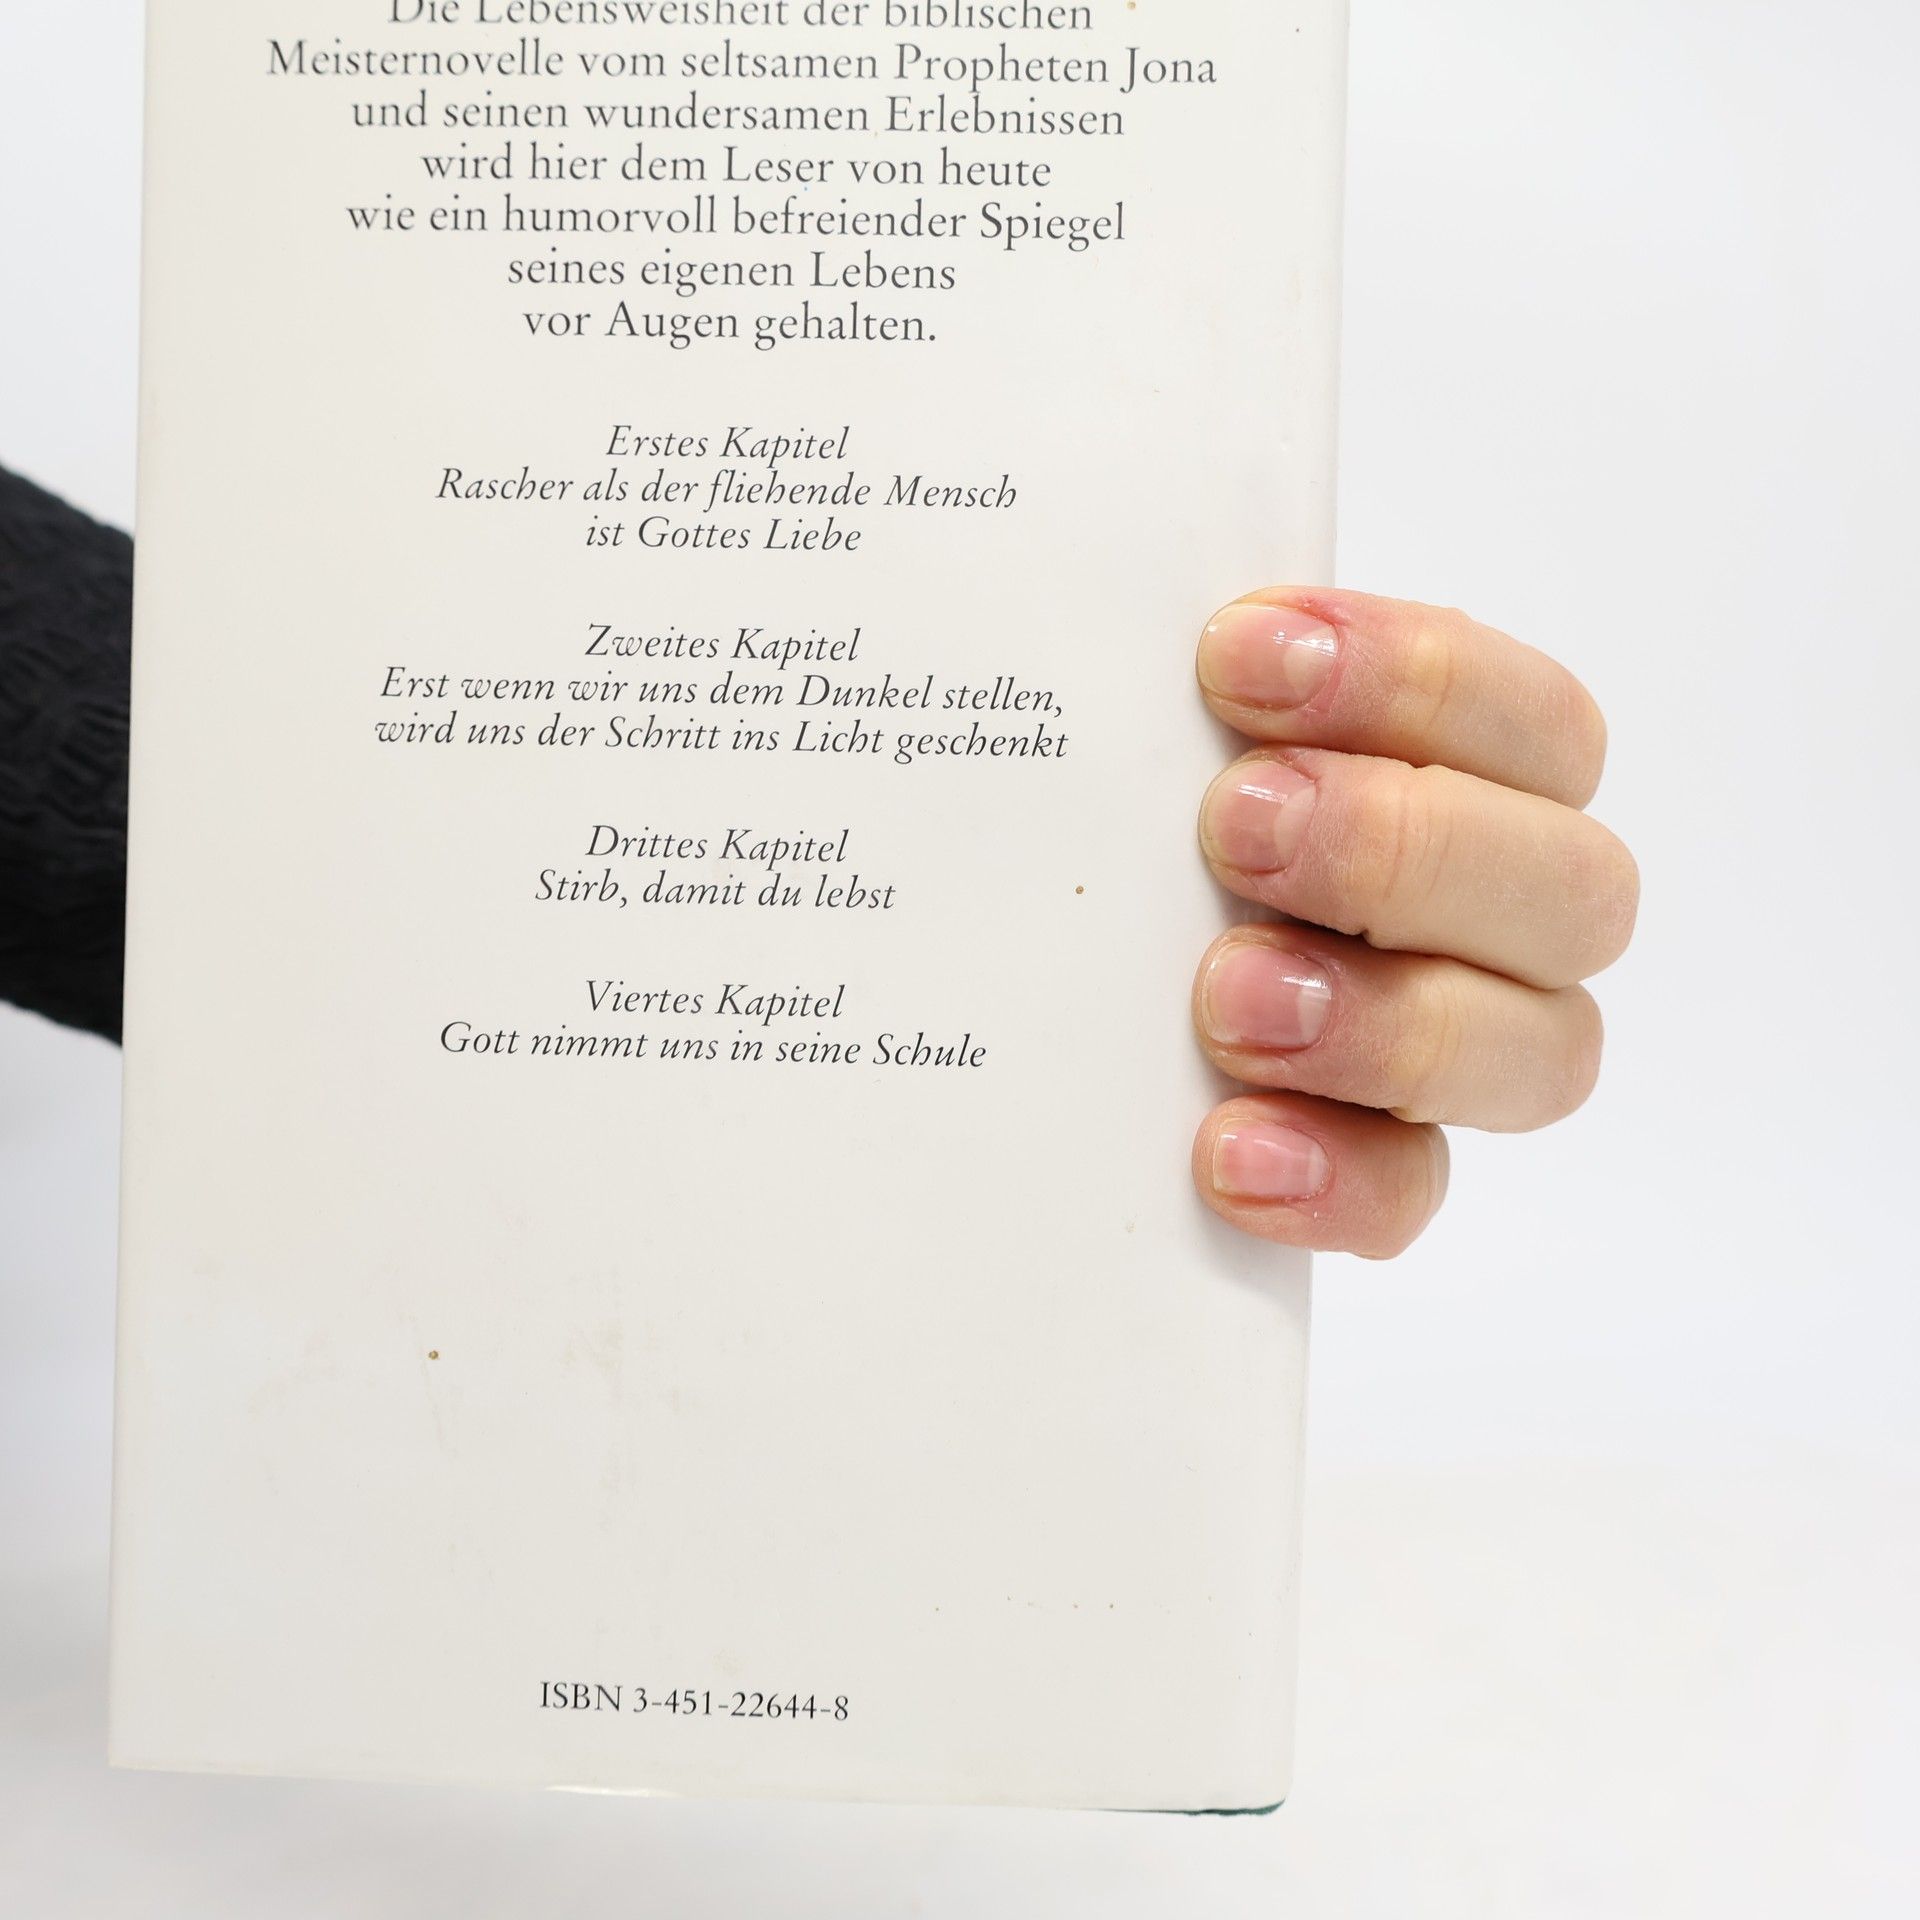 Die Lebensweisheit der biblischen
Meisternovelle vom seltsamen Propheten Jona
und seinen wundersamen Erlebnissen
wird hier dem Leser von heute
wie ein humorvoll befreiender Spiegel
seines eigenen Lebens
vor Augen gehalten.
Erstes Kapitel
Rascher als der fliehende Mensch
ist Gottes Liebe
Zweites Kapitel
Erst wenn wir uns dem Dunkel stellen,
wird uns der Schritt ins Licht geschenkt
Drittes Kapitel
Stirb, damit du lebst
Viertes Kapitel
Gott nimmt uns in seine Schule
ISBN 3-451-22644-8